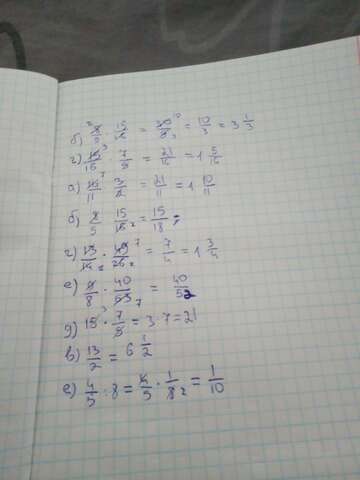 б) 8/9 · 15/4 = 30/9 = 10/3 = 3 1/3
г) 15/16 7/5 = 21/16 = 1 5/16
а) 14/11 3/2 = 21/11 = 1 10/11
б) 8/5 15/16 = 15/18
г) 13/14 · 49/26 = 7/4 = 1 3/4
е) 9/8 · 40/63 7 = 40/52
д) 15 · 7/5 = 3 7 = 21
в) 13/2 = 6 1/2
е) 4/5 : 8 = 4/5 · 1/8 2 = 1/10